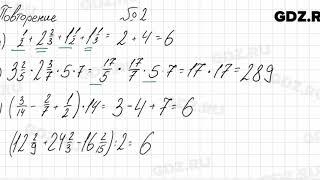 Повторение №2 GDZ.RU
) 1/2 + 2 2/3 + 1 1/2 + 1 1/3 = 2 + 4 = 6
) 3 2/5 · 2 3/7 · 5 · 7 = 17/5 · 17/7 · 5 · 7 = 17 · 17 = 289
) (3/14 - 2/7 + 1/2) · 14 = 3 - 4 + 7 = 6
(12 2/9 + 24 2/3 - 16 2/15) : 2 = 6